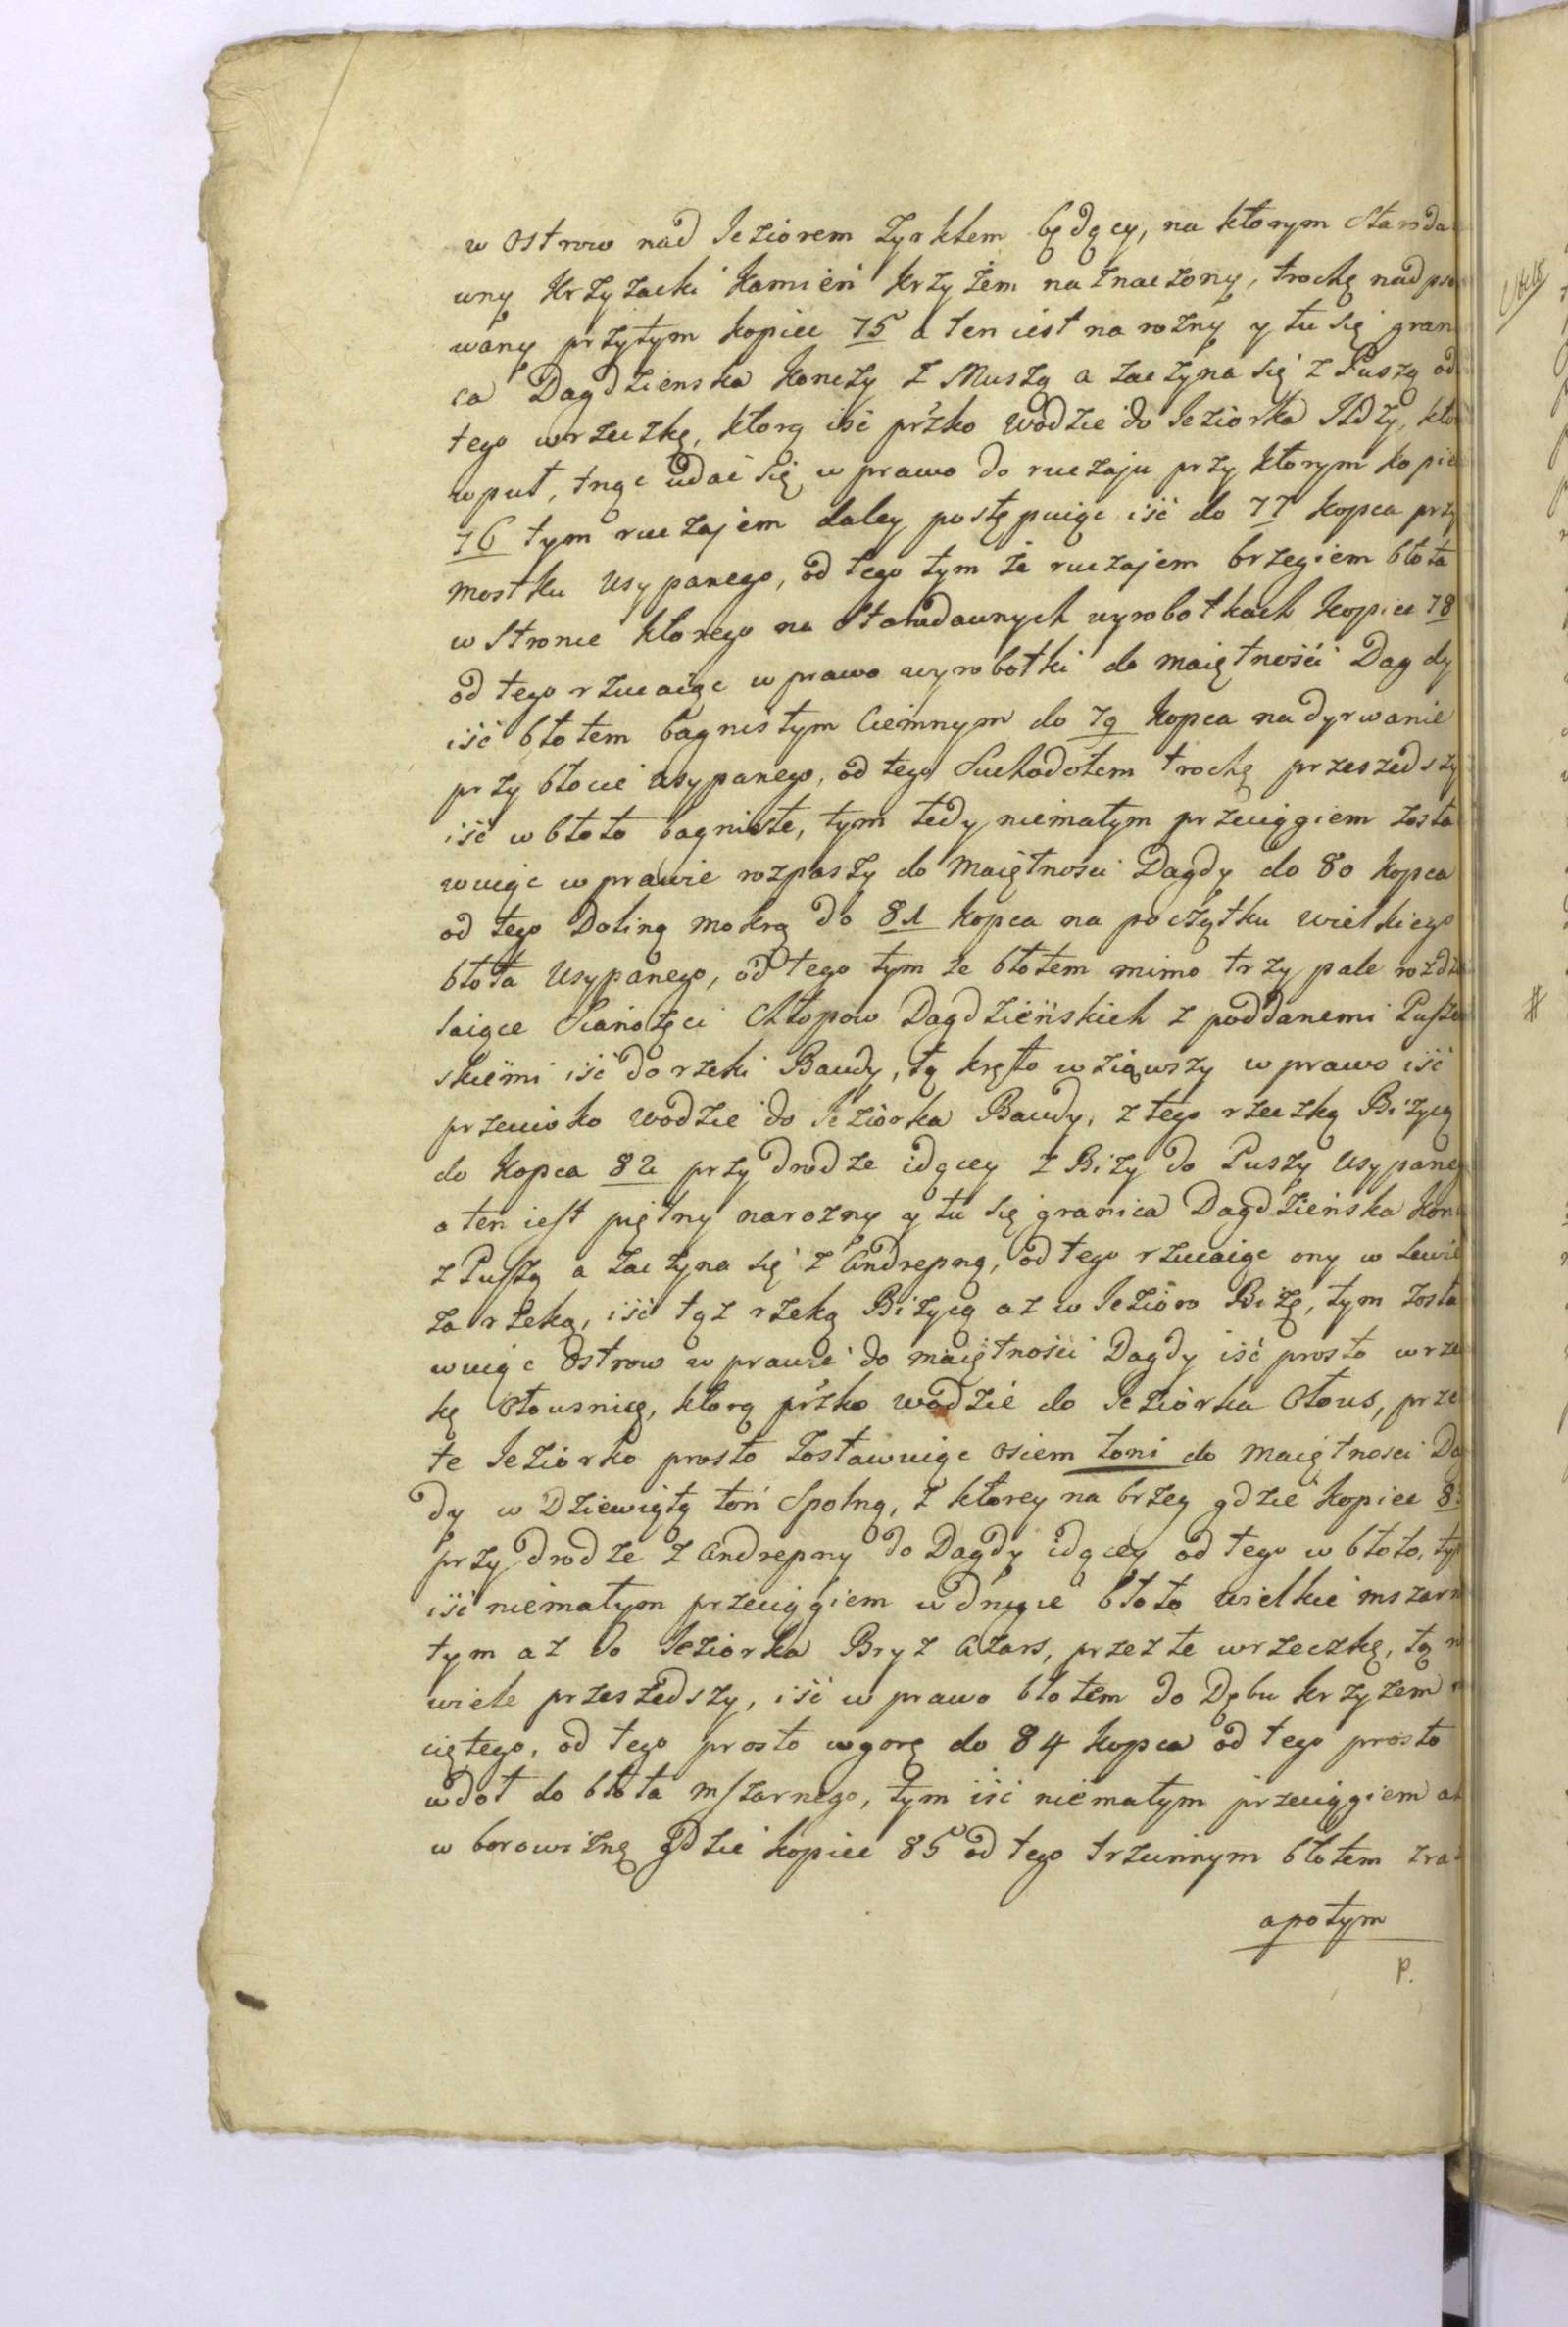 w ostrow nad Jeziorem Zyrklem będący, na ktorym Staroda
wny Krzyżacki kamień krzyżem naznaczony, trochę nadpso
wany przytym kopiec 75 a ten iest narożny y tu się grani
ca Dagdzienska konczy z Muszą a zaczyna się z Puszą od
tego w rzeczkę, ktorą iść przko wodzie do Jeziorka Idzy, kto
wput, tnąc udać się w prawo do ruczaju przy ktorym kopie
76 tym ruczajem daley postępuiąc iść do 77 kopca przy
mostku usypanego, od tego tym że ruczajem brzegiem błota
w stronie ktorego na Starodawnych wyrobotkach kopiec 78
od tego rzucaiąc w prawo wyrobotki do maiętności Dagdy
iść błotem bagnistym ciemnym do 79 kopca na dyrwanie
przy błocie usypanego, od tego Suchodołem trochę przeszedszy
iść w błoto bagniste, tym tedy niemałym przeciągiem zosta
wuiąc w prawie rozpaszy do Maiętnosci Dagdy do 80 kopca
od tego Doliną mokrą do 81 kopca na początku wielkiego
błota usypanego, od tego tym że błotem mimo trzy pale rozdzie
laiące Sianożęci Chłopow Dagdzieńskich z poddanemi Pusze
skiemi iść do rzeki Baudy, tą kręto wziąwszy w prawo iść
przeciwko wodzie do Jeziorka Baudy, z tego rzeczką Biżycą
do kopca 82 przy drodze idącey z Biży do Puszy usypaneg
a ten iest piętny narożny y tu się granica Dagdzieńska kon
z Puszą a zaczyna się z Andrepną, od tego rzucaiąc ony w lewie
za rzeką, iść tąż rzeką Biżycą aż w Jezioro Biżę, tym zosta
wuiąc Ostrow w prawie do maiętności Dagdy iść prosto w rze
kę Ołousnicę, ktorą przko wodzie do Jeziorka Ołous, prze
te Jeziorko prosto zostawuiąc osiem toni do Maiętnosci Da
dy w Dziewiątą toń Spolną, z ktorey na brzeg gdzie kopiec 8
przy drodze z Andrepny do Dagdy idącey od tego w błoto, ty
iść niemałym przeciągiem w drugie błoto wielkie mszarn
tym aż do Jeziorka Bryz Azars, przez te w rzeczkę, tą n
wiele przeszedszy, iść w prawo błotem do Dębu krzyżem
ciętego, od tego prosto w gorę do 84 kopca od tego prosto
w doł do błota mszarnego, tym iść niemałym przeciągiem aż
w borowiznę gdzie kopiec 85 od tego trzcinnym błotem zra
apotym
p.